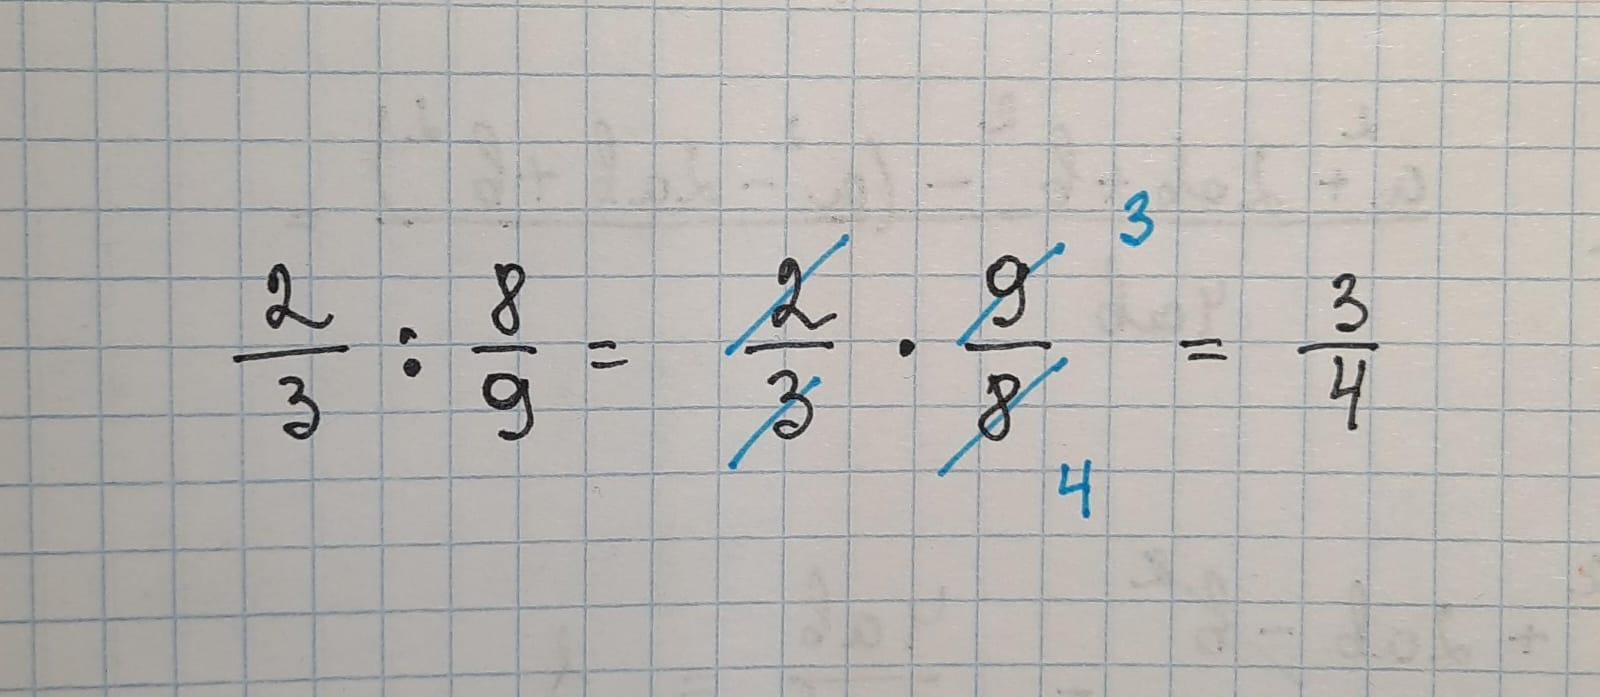 2/3 : 8/9 = 2/3 · 9/8 = 3/4
3
4